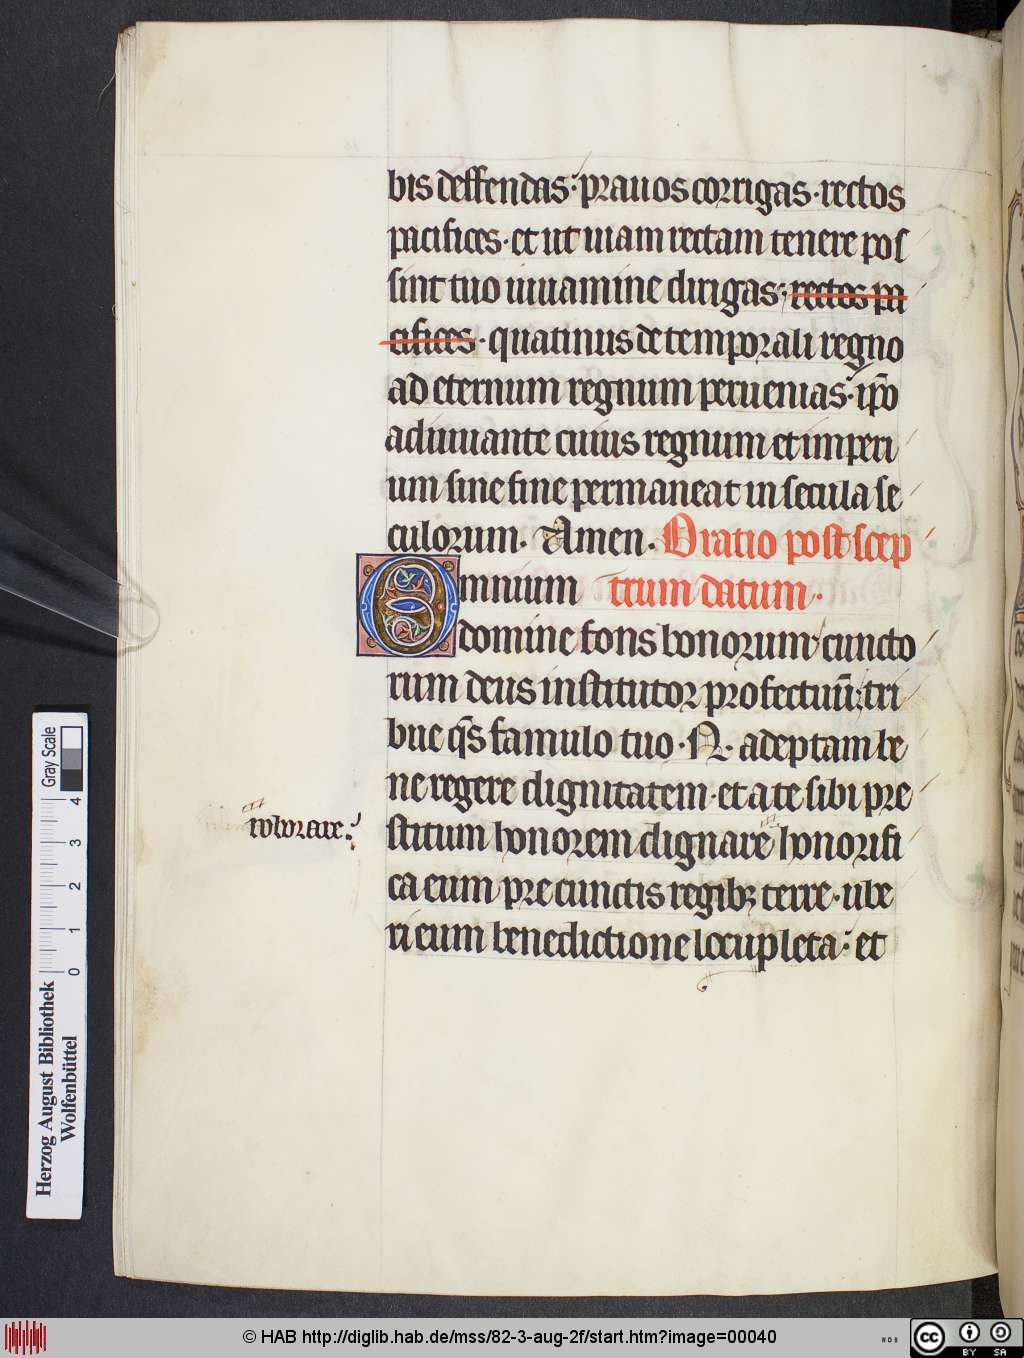 bis deffendas· prauos corrigas· rectos
pacificos· et ut uiam rectam tenere pos
sint tuo iuuamine dirigas; rectos pa
cifices· quatinus de temporali regno
ad eternum regnum peruenias· ip̄o
adiuuante cuius regnum et imperi
um sine fine permaneat in secula se
culorum. Amen. Oratio post scep
mnium trum datum.
domine fons bonorum cuncto
rum deus institutor profectuū; tri
bue q̄s famulo tuo· N· adeptam be
ne regere dignitatem· et a te sibi pre
roborare:
stitum honorem dignare honorifi
ca eum pre cunctis regibꝫ terre· ube
ri eum benedictione locupleta· et
Gray Scale
4 3 2 1 0
Herzog August Bibliothek
Wolfenbüttel
© HAB http://diglib.hab.de/mss/82-3-aug-2f/start.htm?image=00040
WDB
cc BY SA